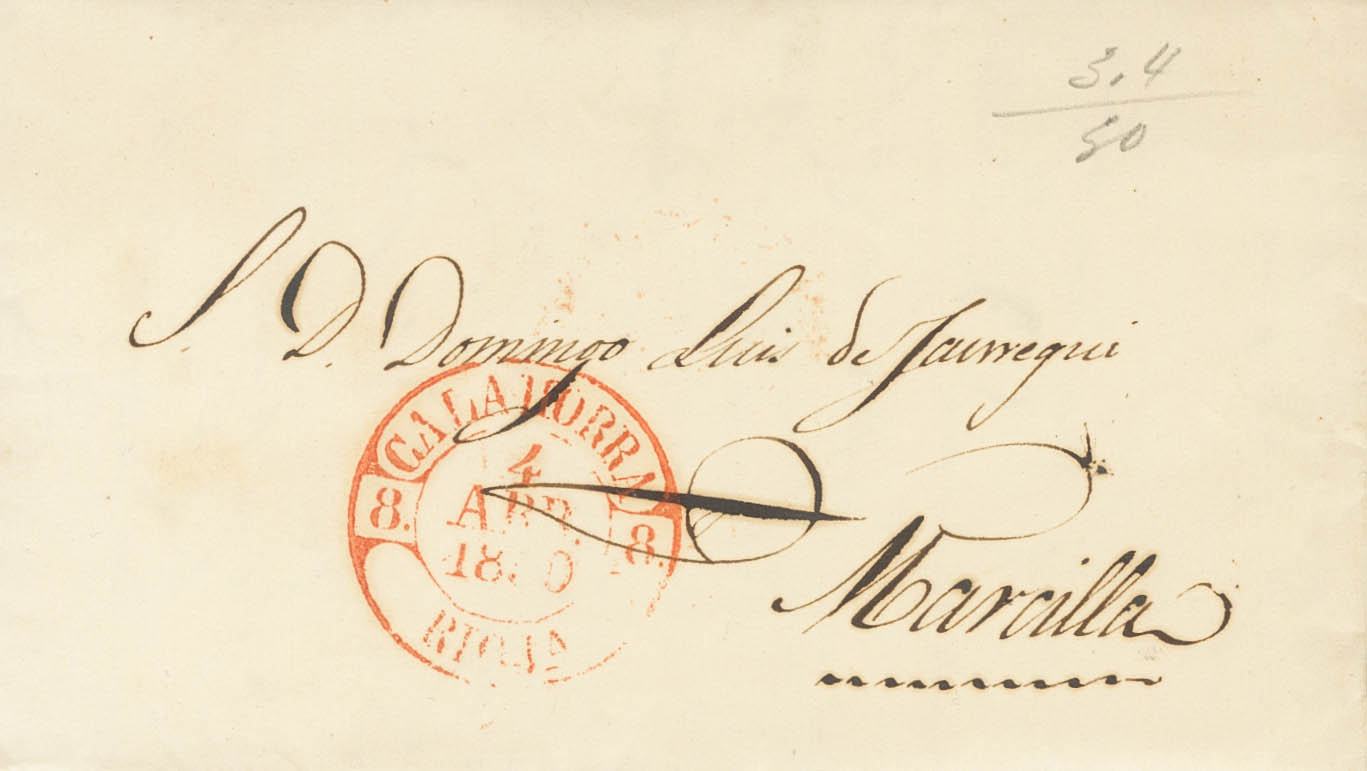 3.4
50
S. D. Domingo Luis de Jaurregui
CALAHORRA
8. 4 8.
ABR.
RIOJA
Marcilla